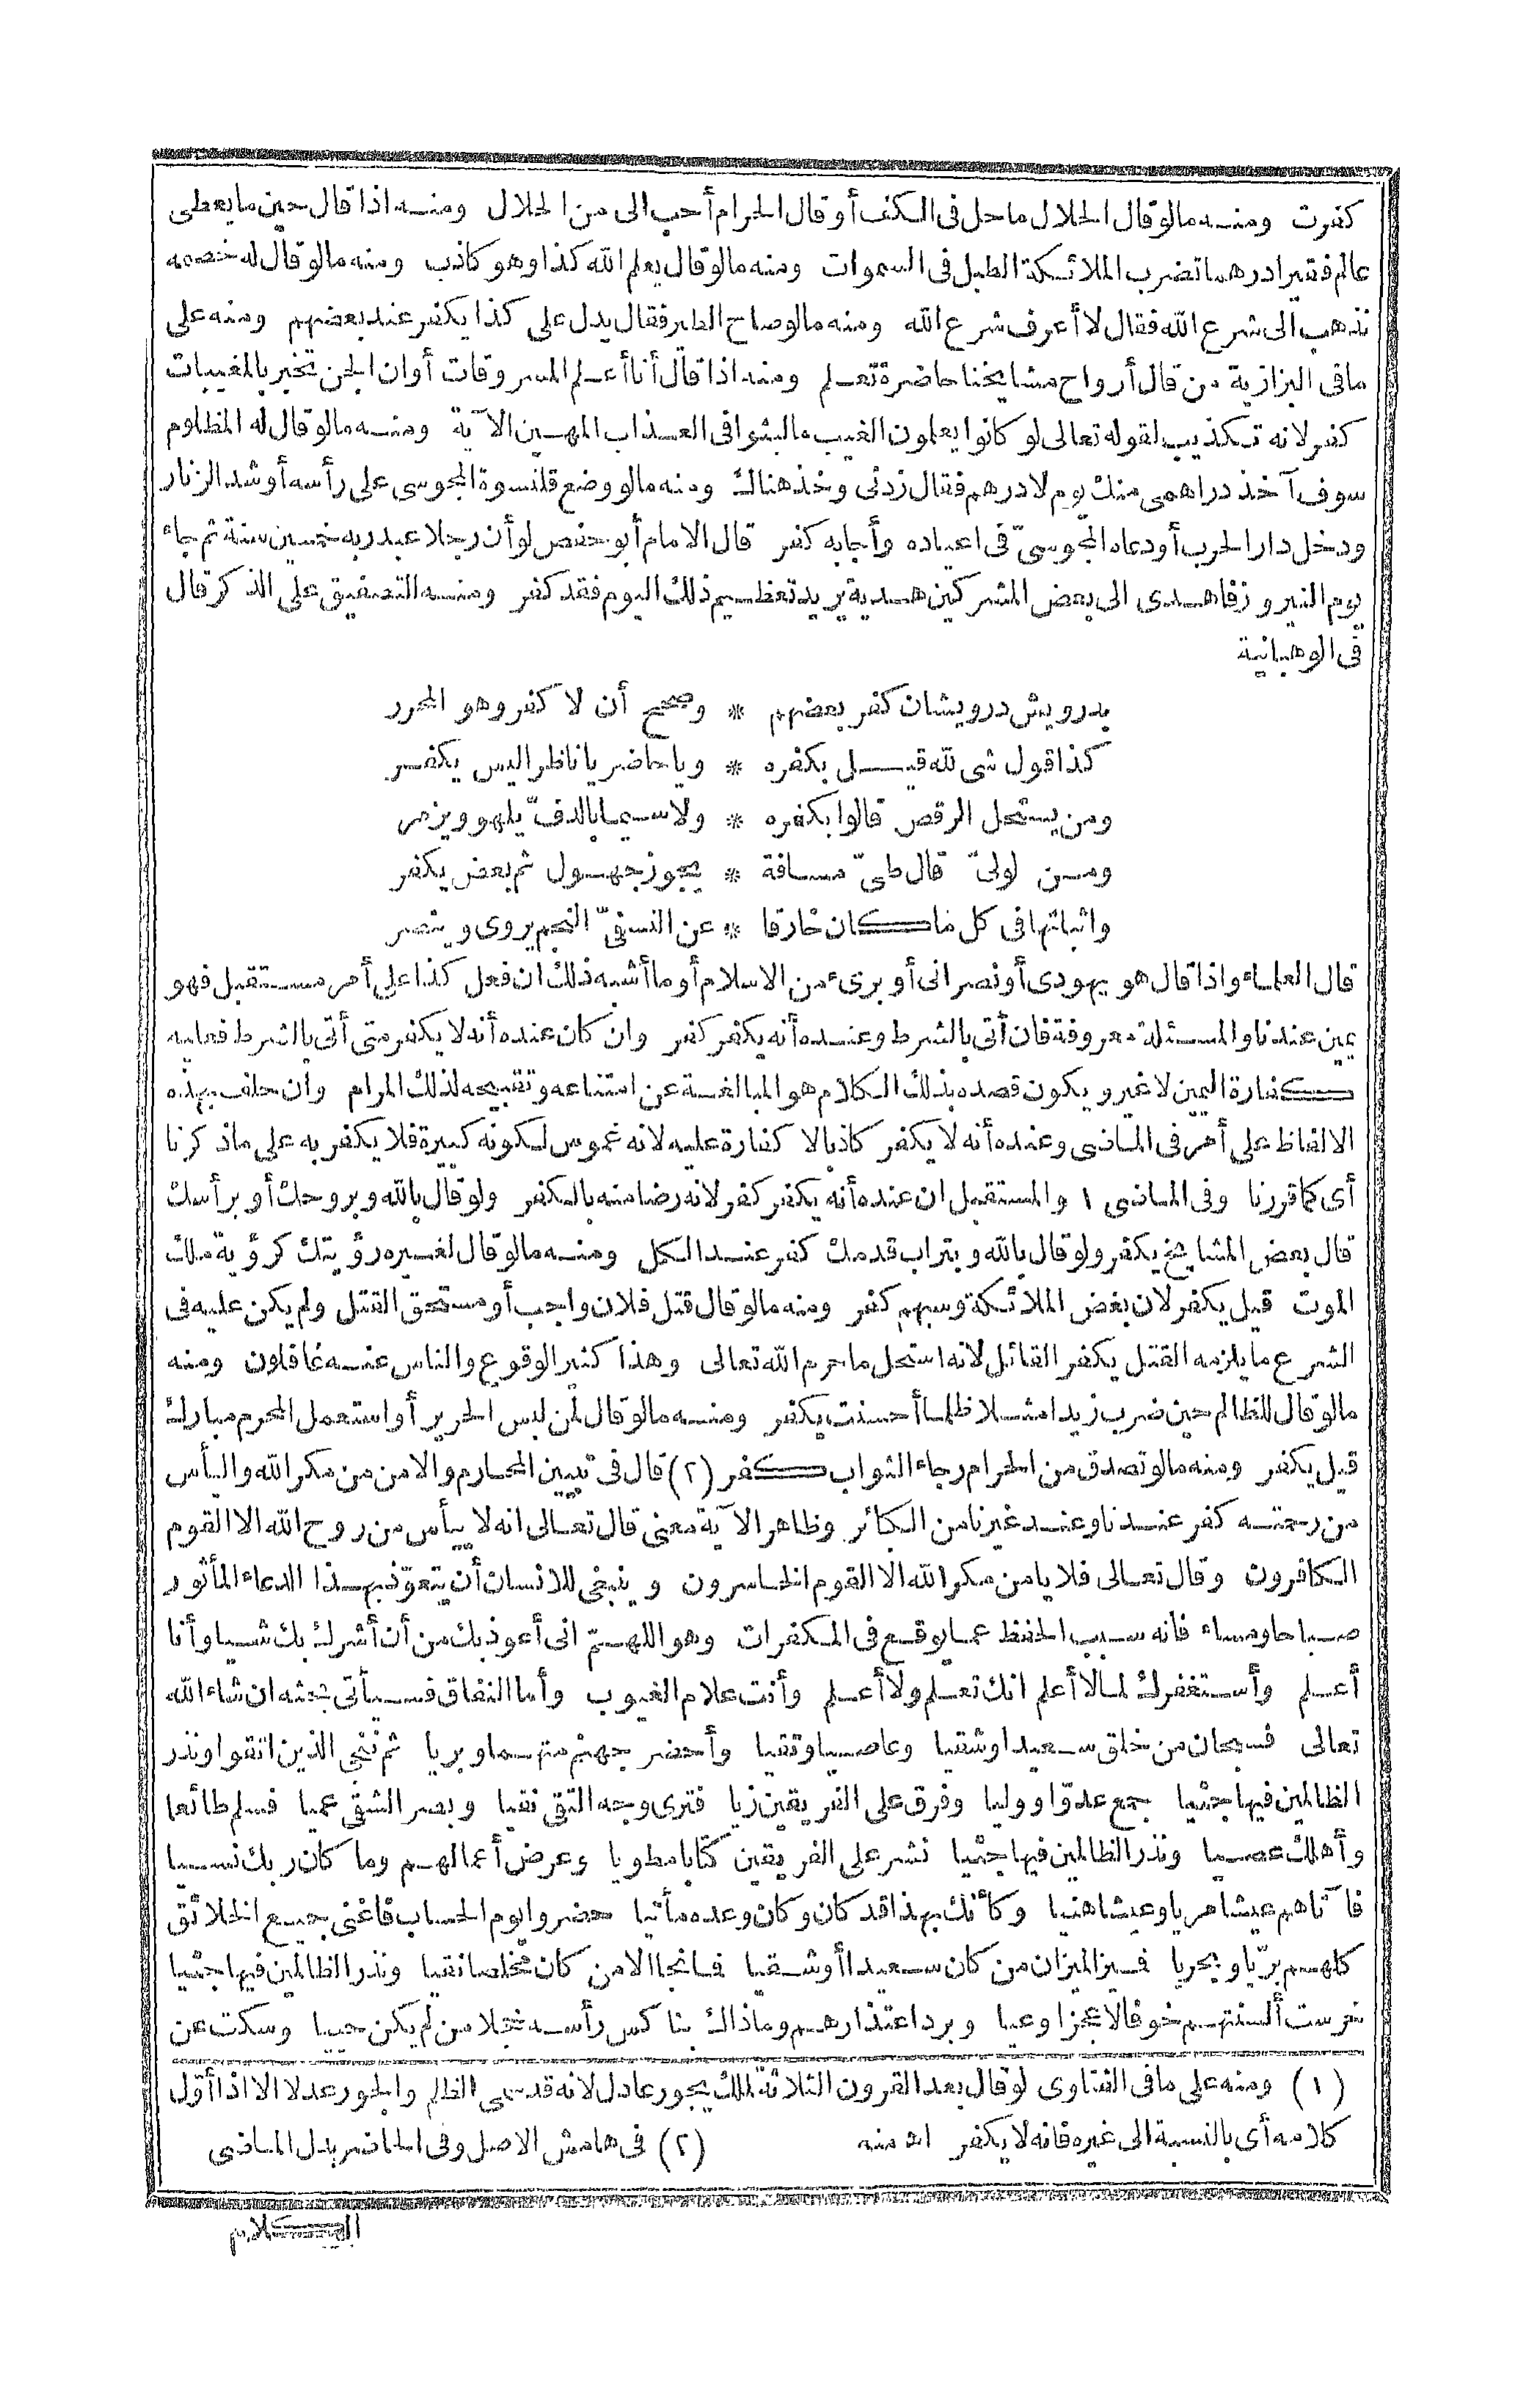 كفرت ومنه مالو قال الحلال ماحل فى الكف أو قال الحرام أحب الى من الحلال ومنه اذا قال حين ما يعطى
عالم فقيرا درهما تضرب الملائكة الطبل فى السموات ومنه مالو قال يعلم الله كذا وهو كاذب ومنه مالو قال له خصمه
نذهب الى شرع الله فقال لا أعرف شرع الله ومنه مالو صاح الطير فقال يدل على كذا يكفر عند بعضهم ومنه على
مافى البزازية من قال أرواح مشايخنا حاضرة تعلم ومنه اذا قال أنا أعلم المسروقات أو ان الجن تخبر بالمغيبات
كفر لانه تكذيب لقوله تعالى لو كانوا يعلمون الغيب ما لبثوا فى العذاب المهين الآية ومنه مالو قال له المظلوم
سوف آخذ دراهمى منك يوم لا درهم فقال زدنى وخذ هناك ومنه مالو وضع قلنسوة المجوسى على رأسه أو شد الزنار
ودخل دار الحرب أو دعاه المجوسىّ فى اعياده وأجابه كفر قال الامام أبو حفص لو أن رجلا عبد ربه خمسين سنة ثم جاء
يوم النيروز فاهدى الى بعض المشركين هدية يريد تعظيم ذلك اليوم فقد كفر ومنه التصفيق على الذكر قال
فى الوهبانية
بدرويش درويشان كفر بعضهم * وصحح أن لا كفر وهو المحرر
كذا قول شى لله قيل بكفره * ويا حاضر يا ناظر اليس يكفر
ومن يستحل الرقص قالوا بكفره * ولا سيما بالدفّ يلهو ويزمر
ومن لولىّ قال طىّ مسافة * يجوز جهول ثم بعض يكفر
واثباتها فى كل ماكان خارقا * عن النسفىّ النجم يروى وينصر
قال العلماء واذا قال هو يهودى أو نصرانى أو برىء من الاسلام أو ما أشبه ذلك ان فعل كذا على أمر مستقبل فهو
يمين عندنا والمسئلة معروفة فان أتى بالشرط وعنده أنه يكفر كفر وان كان عنده أنه لا يكفر متى أتى بالشرط فعليه
كفارة اليمين لا غير ويكون قصده بذلك الكلام هو المبالغة عن امتناعه وتقبيحه لذلك المرام وان حلف بهذه
الالفاظ على أمر فى الماضى وعنده أنه لا يكفر كاذبا لا كفارة عليه لانه غموس لكونه كبيرة فلا يكفر به على ما ذكرنا
أى كما قررنا وفى الماضى ١ والمستقبل ان عنده أنه يكفر كفر لانه رضا منه بالكفر ولو قال بالله وبروحك أو برأسك
قال بعض المشايخ يكفر ولو قال بالله وبتراب قدمك كفر عند الكل ومنه مالو قال لغيره رؤيتك كرؤية ملك
الموت قيل يكفر لان بغض الملائكة وسبهم كفر ومنه مالو قال قتل فلان واجب أو مستحق القتل ولم يكن عليه فى
الشرع ما يلزمه القتل يكفر القائل لانه استحل ما حرم الله تعالى وهذا كثير الوقوع والناس عنه غافلون ومنه
مالو قال للظالم حين ضرب زيدا مثلا ظلما أحسنت يكفر ومنه مالو قال لمن لبس الحرير أو استعمل المحرم مبارك
قيل يكفر ومنه مالو تصدق من الحرام رجاء الثواب كفر (٢) قال فى تبيين المحارم والامن من مكر الله واليأس
من رحمته كفر عندنا وعند غيرنا من الكبائر وظاهر الآية معنى قال تعالى انه لا ييأس من روح الله الا القوم
الكافرون وقال تعالى فلا يامن مكر الله الا القوم الخاسرون وينبغى للانسان أن يتعوّذ بهذا الدعاء المأثور
صباحا ومساء فانه سبب الحفظ عما يوقع فى المكفرات وهو اللهمّ انى أعوذ بك من أن أشرك بك شيا وأنا
أعلم وأستغفرك لما لا أعلم انك تعلم ولا أعلم وأنت علام الغيوب وأما النفاق فسيأتى بحثه ان شاء الله
تعالى فسبحان من خلق سعيدا وشقيا وعاصيا وتقيا وأحضر جهنم متهما وبريا ثم ننجى الذين اتقوا ونذر
الظالمين فيها جثيا جمع عدوّا ووليا وفرق على الفريقين زيا فترى وجه التقى نقيا وبصر الشقى عميا فسلم طائعا
وأهلك عصيا ونذر الظالمين فيها جثيا نشر على الفريقين كتابا مطويا وعرض أعمالهم وما كان ربك نسيا
فآتاهم عيشا مريا وعيشا هنيا وكأنك بهذا قد كان وكان وعده مأتيا حضروا يوم الحساب فاغنى جميع الخلائق
كلهم برّيا وبحريا فميز الميزان من كان سعيدا أو شقيا فما نجا الا من كان مخلصا نقيا ونذر الظالمين فيها جثيا
خرست ألسنتهم خوفا لا عجزا وعيا وبرد اعتذارهم وما ذاك بنا كس رأسه خجلا من لم يكن حييا وسكت عن
(١) ومنه على مافى الفتاوى لو قال بعد القرون الثلاثة لملك يجور عادل لانه قد سمى الظلم والجور عدلا الا اذا أوّل
كلامه أى بالنسبة الى غيره فانه لا يكفر اه منه (٢) فى هامش الاصل وفى الحاضر بدل الماضى
الكلام